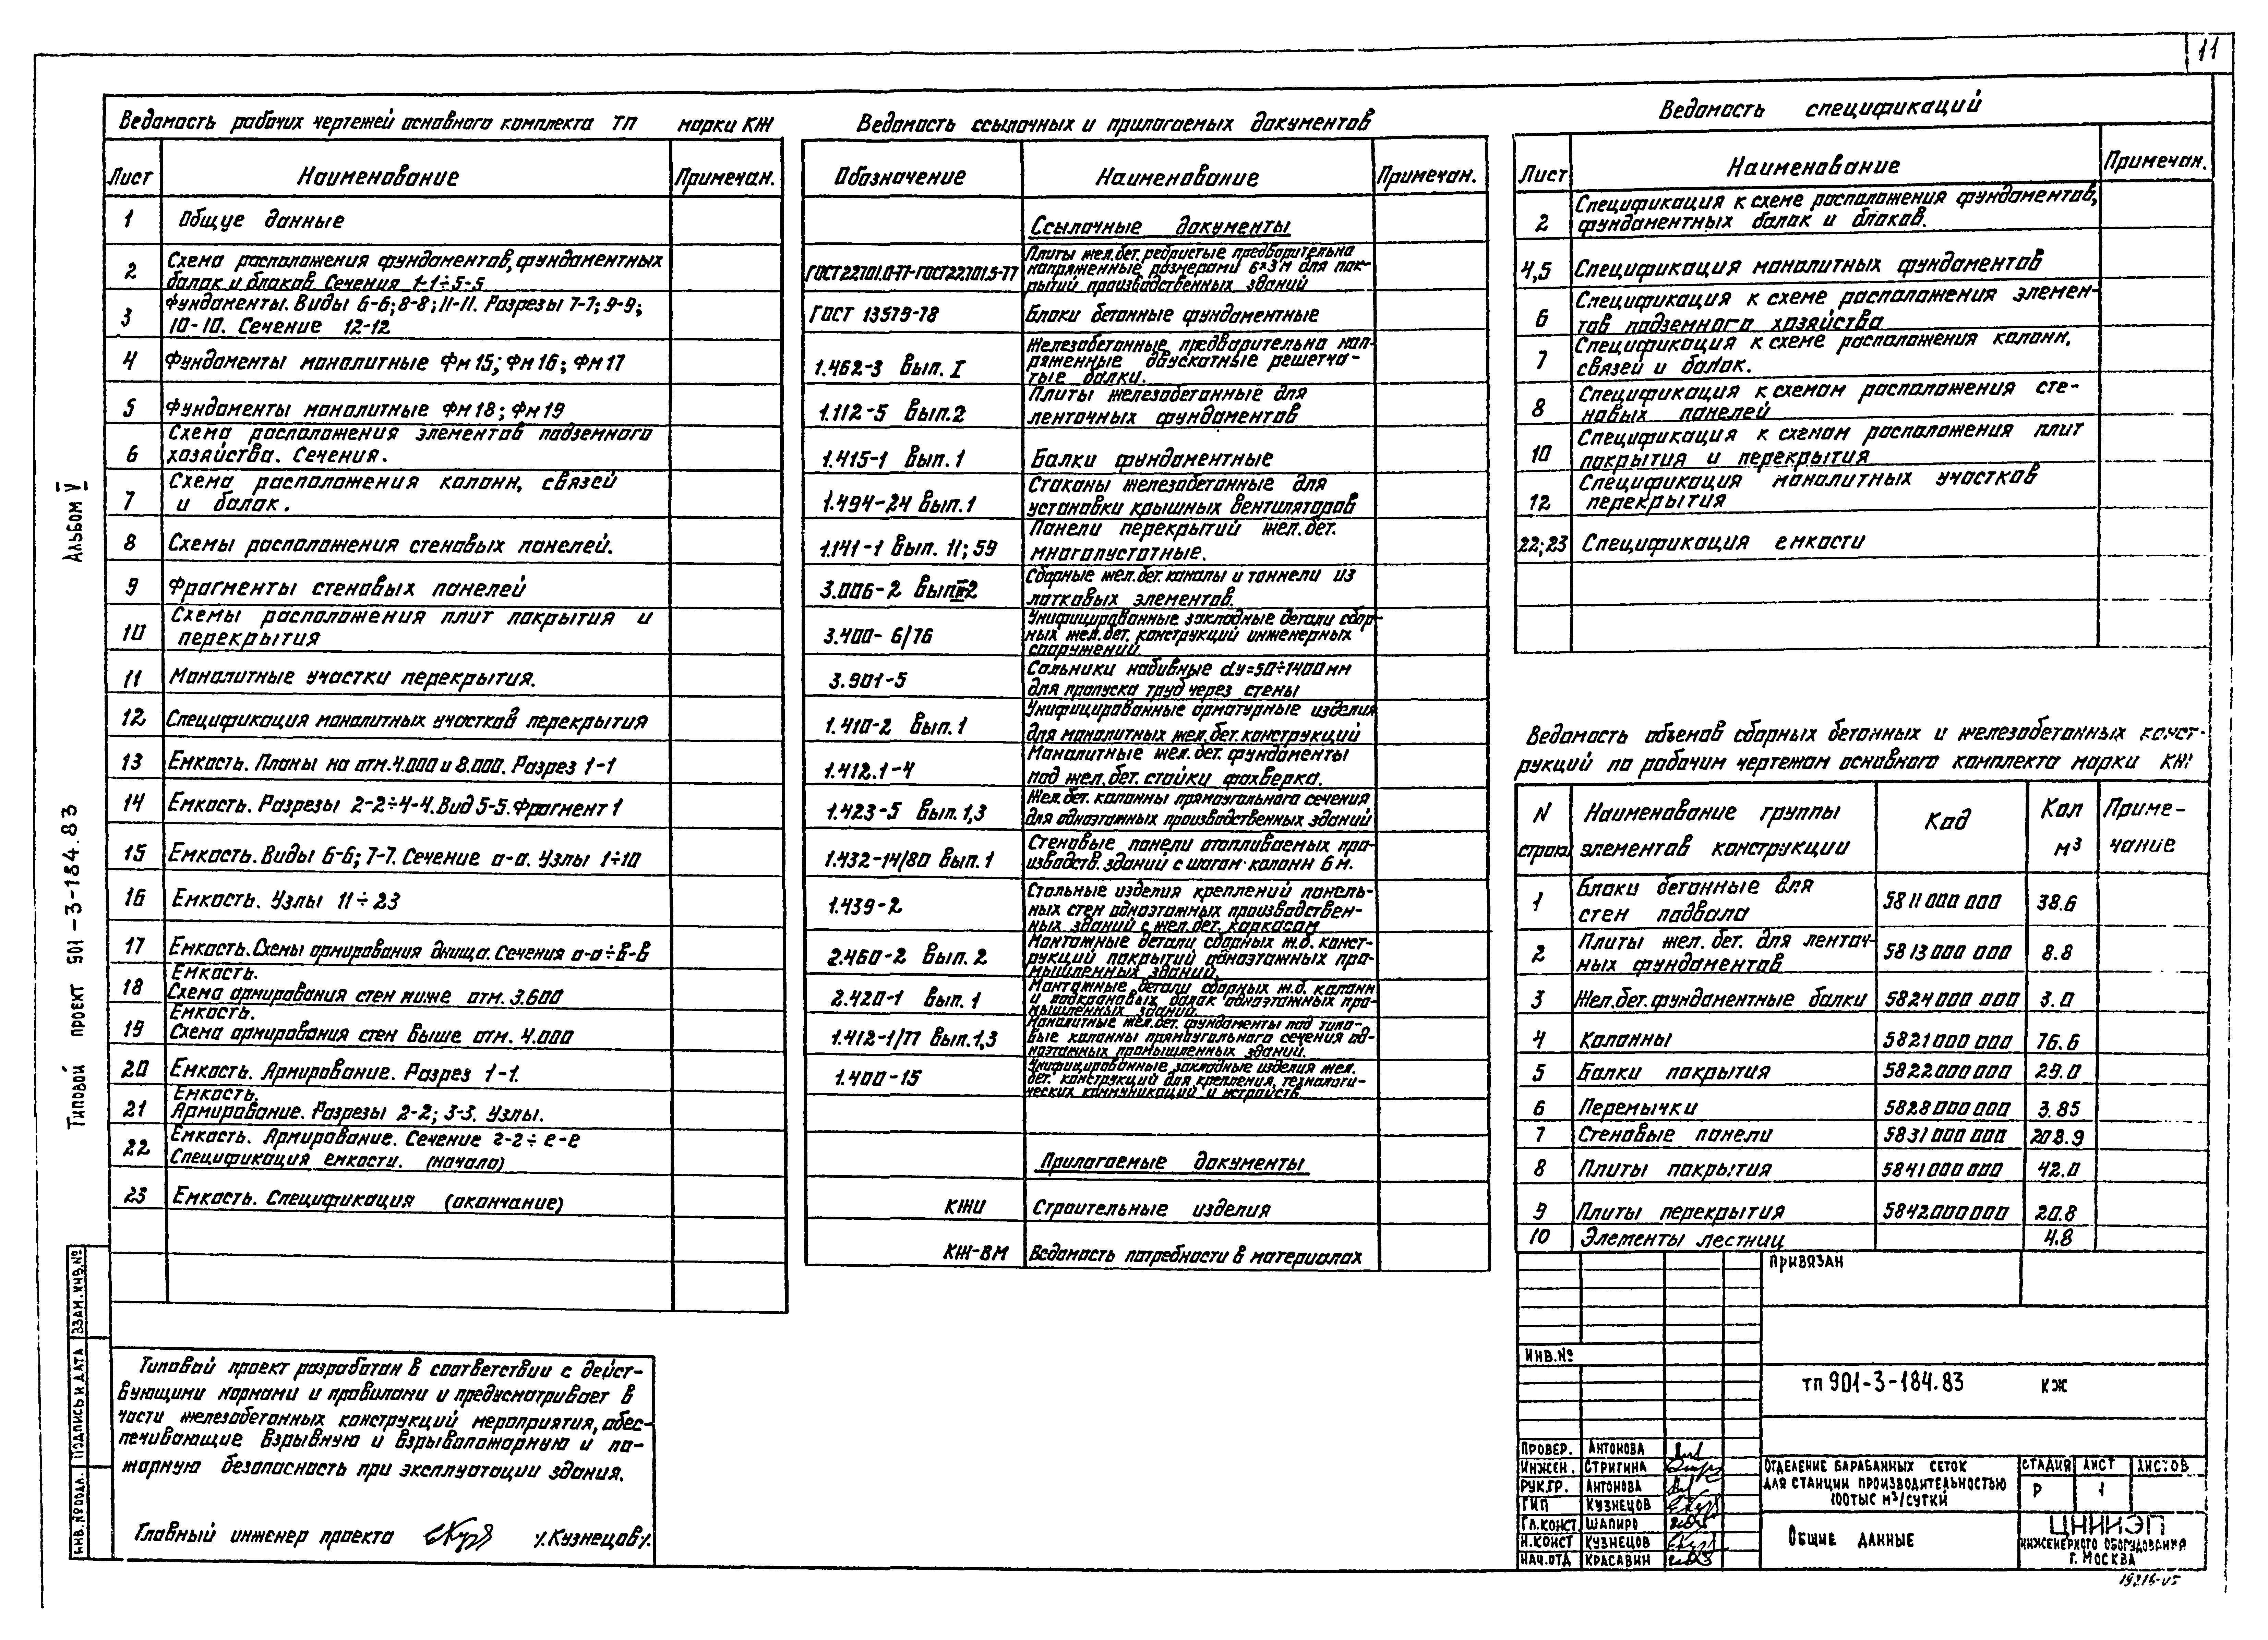 11
Ведомость рабочих чертежей основного комплекта ТП марки КЖ
Лист Наименование Примечан.
1 Общие данные
2 Схема расположения фундаментов, фундаментных
балок и блоков Сечения 1-1÷5-5
3 Фундаменты. Виды 6-6; 8-8; 11-11. Разрезы 7-7; 9-9;
10-10. Сечение 12-12
4 Фундаменты монолитные Фм 15; Фм 16; Фм 17
5 Фундаменты монолитные Фм 18; Фм 19
6 Схема расположения элементов подземного
хозяйства. Сечения.
7 Схема расположения колонн, связей
и балок.
8 Схемы расположения стеновых панелей.
9 Фрагменты стеновых панелей
10 Схемы расположения плит покрытия и
перекрытия
11 Монолитные участки перекрытия.
12 Спецификация монолитных участков перекрытия
13 Емкость. Планы на отм. 4.000 и 8.000. Разрез 1-1
14 Емкость. Разрезы 2-2÷4-4. Вид 5-5. Фрагмент 1
15 Емкость. Виды 6-6; 7-7. Сечение а-а. Узлы 1÷10
16 Емкость. Узлы 11÷23
17 Емкость. Схемы армирования днища. Сечения а-а÷в-в
18 Емкость.
Схема армирования стен ниже отм. 3.600
19 Емкость.
Схема армирования стен выше отм. 4.000
20 Емкость. Армирование. Разрез 1-1.
21 Емкость.
Армирование. Разрезы 2-2; 3-3. Узлы.
22 Емкость. Армирование. Сечение г-г÷е-е
Спецификация емкости. (начало)
23 Емкость. Спецификация (окончание)
Ведомость ссылочных и прилагаемых документов
Обозначение Наименование Примечан.
Ссылочные документы
ГОСТ 22701.0-77-ГОСТ 22701.5-77 Плиты жел.бет. ребристые предварительно
напряженные размерами 6×3м для пок-
рытий производственных зданий
ГОСТ 13579-78 Блоки бетонные фундаментные
1.462-3 Вып. I Железобетонные предварительно нап-
ряженные двускатные решетча-
тые балки.
1.112-5 Вып.2 Плиты железобетонные для
ленточных фундаментов
1.415-1 Вып. 1 Балки фундаментные
1.494-24 Вып. 1 Стаканы железобетонные для
установки крышных вентиляторов
1.141-1 Вып. 11; 59 Панели перекрытий жел. бет.
многопустотные.
3.006-2 Вып II-2 Сборные жел.бет. каналы и тоннели из
лотковых элементов.
3.400-6/76 Унифицированные закладные детали сбор-
ных жел.бет. конструкций инженерных
сооружений.
3.901-5 Сальники набивные dу=50÷1400мм
для пропуска труб через стены
1.410-2 Вып. 1 Унифицированные арматурные изделия
для монолитных жел.бет. конструкций
1.412.1-4 Монолитные жел. бет. фундаменты
под жел. бет. стойку фахверка.
1.423-5 Вып. 1,3 Жел.бет. колонны прямоугольного сечения
для одноэтажных производственных зданий
1.432-14/80 Вып. 1 Стеновые панели отапливаемых про-
изводств. зданий с шагом колонн 6 м.
1.439-2 Стальные изделия креплений панель-
ных стен одноэтажных производствен-
ных зданий с жел.бет. каркасом
2.460-2 Вып. 2 Монтажные детали сборных ж.б. конст-
рукций покрытий одноэтажных про-
мышленных зданий.
2.420-1 Вып. 1 Монтажные детали сборных ж.б. колонн
и подкрановых балок одноэтажных про-
мышленных зданий.
1.412-1/77 Вып. 1,3 Монолитные жел. бет. фундаменты под типо-
вые колонны прямоугольного сечения од-
ноэтажных промышленных зданий.
1.400-15 Унифицированные закладные изделия жел.
бет. конструкций для крепления технологи-
ческих коммуникаций и устройств
Прилагаемые документы
КЖИ Строительные изделия
КЖ-ВМ Ведомость потребности в материалах
Ведомость спецификаций
Лист Наименование Примечан.
2 Спецификация к схеме расположения фундаментов,
фундаментных балок и блоков.
4,5 Спецификация монолитных фундаментов
6 Спецификация к схеме расположения элемен-
тов подземного хозяйства
7 Спецификация к схеме расположения колонн,
связей и балок.
8 Спецификация к схемам расположения сте-
новых панелей
10 Спецификация к схемам расположения плит
покрытия и перекрытия
12 Спецификация монолитных участков
перекрытия
22;23 Спецификация емкости
Ведомость объемов сборных бетонных и железобетонных конст-
рукций по рабочим чертежам основного комплекта марки КЖ
N Наименование группы Код Кол Приме-
строки элементов конструкции м³ чание
1 Блоки бетонные для
стен подвала 5811000000 38.6
2 Плиты жел. бет. для ленточ-
ных фундаментов 5813000000 8.8
3 Жел.бет. фундаментные балки 5824000000 3.0
4 Колонны 5821000000 76.6
5 Балки покрытия 5822000000 29.0
6 Перемычки 5828000000 3.85
7 Стеновые панели 5831000000 208.9
8 Плиты покрытия 5841000000 42.0
9 Плиты перекрытия 5842000000 20.8
10 Элементы лестниц 4.8
Альбом V
Типовой проект 901-3-184.83
ВЗАМ.ИНВ.№
ПОДПИСЬ И ДАТА
ИНВ.№ ПОДЛ.
Типовой проект разработан в соответствии с дейст-
вующими нормами и правилами и предусматривает в
части железобетонных конструкций мероприятия, обес-
печивающие взрывную и взрывопожарную и по-
жарную безопасность при эксплуатации здания.
Главный инженер проекта /Кузнецов/.
ПРИВЯЗАН
ИНВ.№
ТП 901-3-184.83 КЖ
ПРОВЕР. АНТОНОВА
ИНЖЕН. СТРИГИНА
РУК.ГР. АНТОНОВА
ГИП КУЗНЕЦОВ
ГЛ.КОНСТ ШАПИРО
Н.КОНСТ КУЗНЕЦОВ
НАЧ.ОТД КРАСАВИН
ОТДЕЛЕНИЕ БАРАБАННЫХ СЕТОК
ДЛЯ СТАНЦИИ ПРОИЗВОДИТЕЛЬНОСТЬЮ
100ТЫС М³/СУТКИ
СТАДИЯ ЛИСТ ЛИСТОВ
Р 1
ОБЩИЕ ДАННЫЕ
ЦНИИЭП
ИНЖЕНЕРНОГО ОБОРУДОВАНИЯ
Г. МОСКВА
19216-05